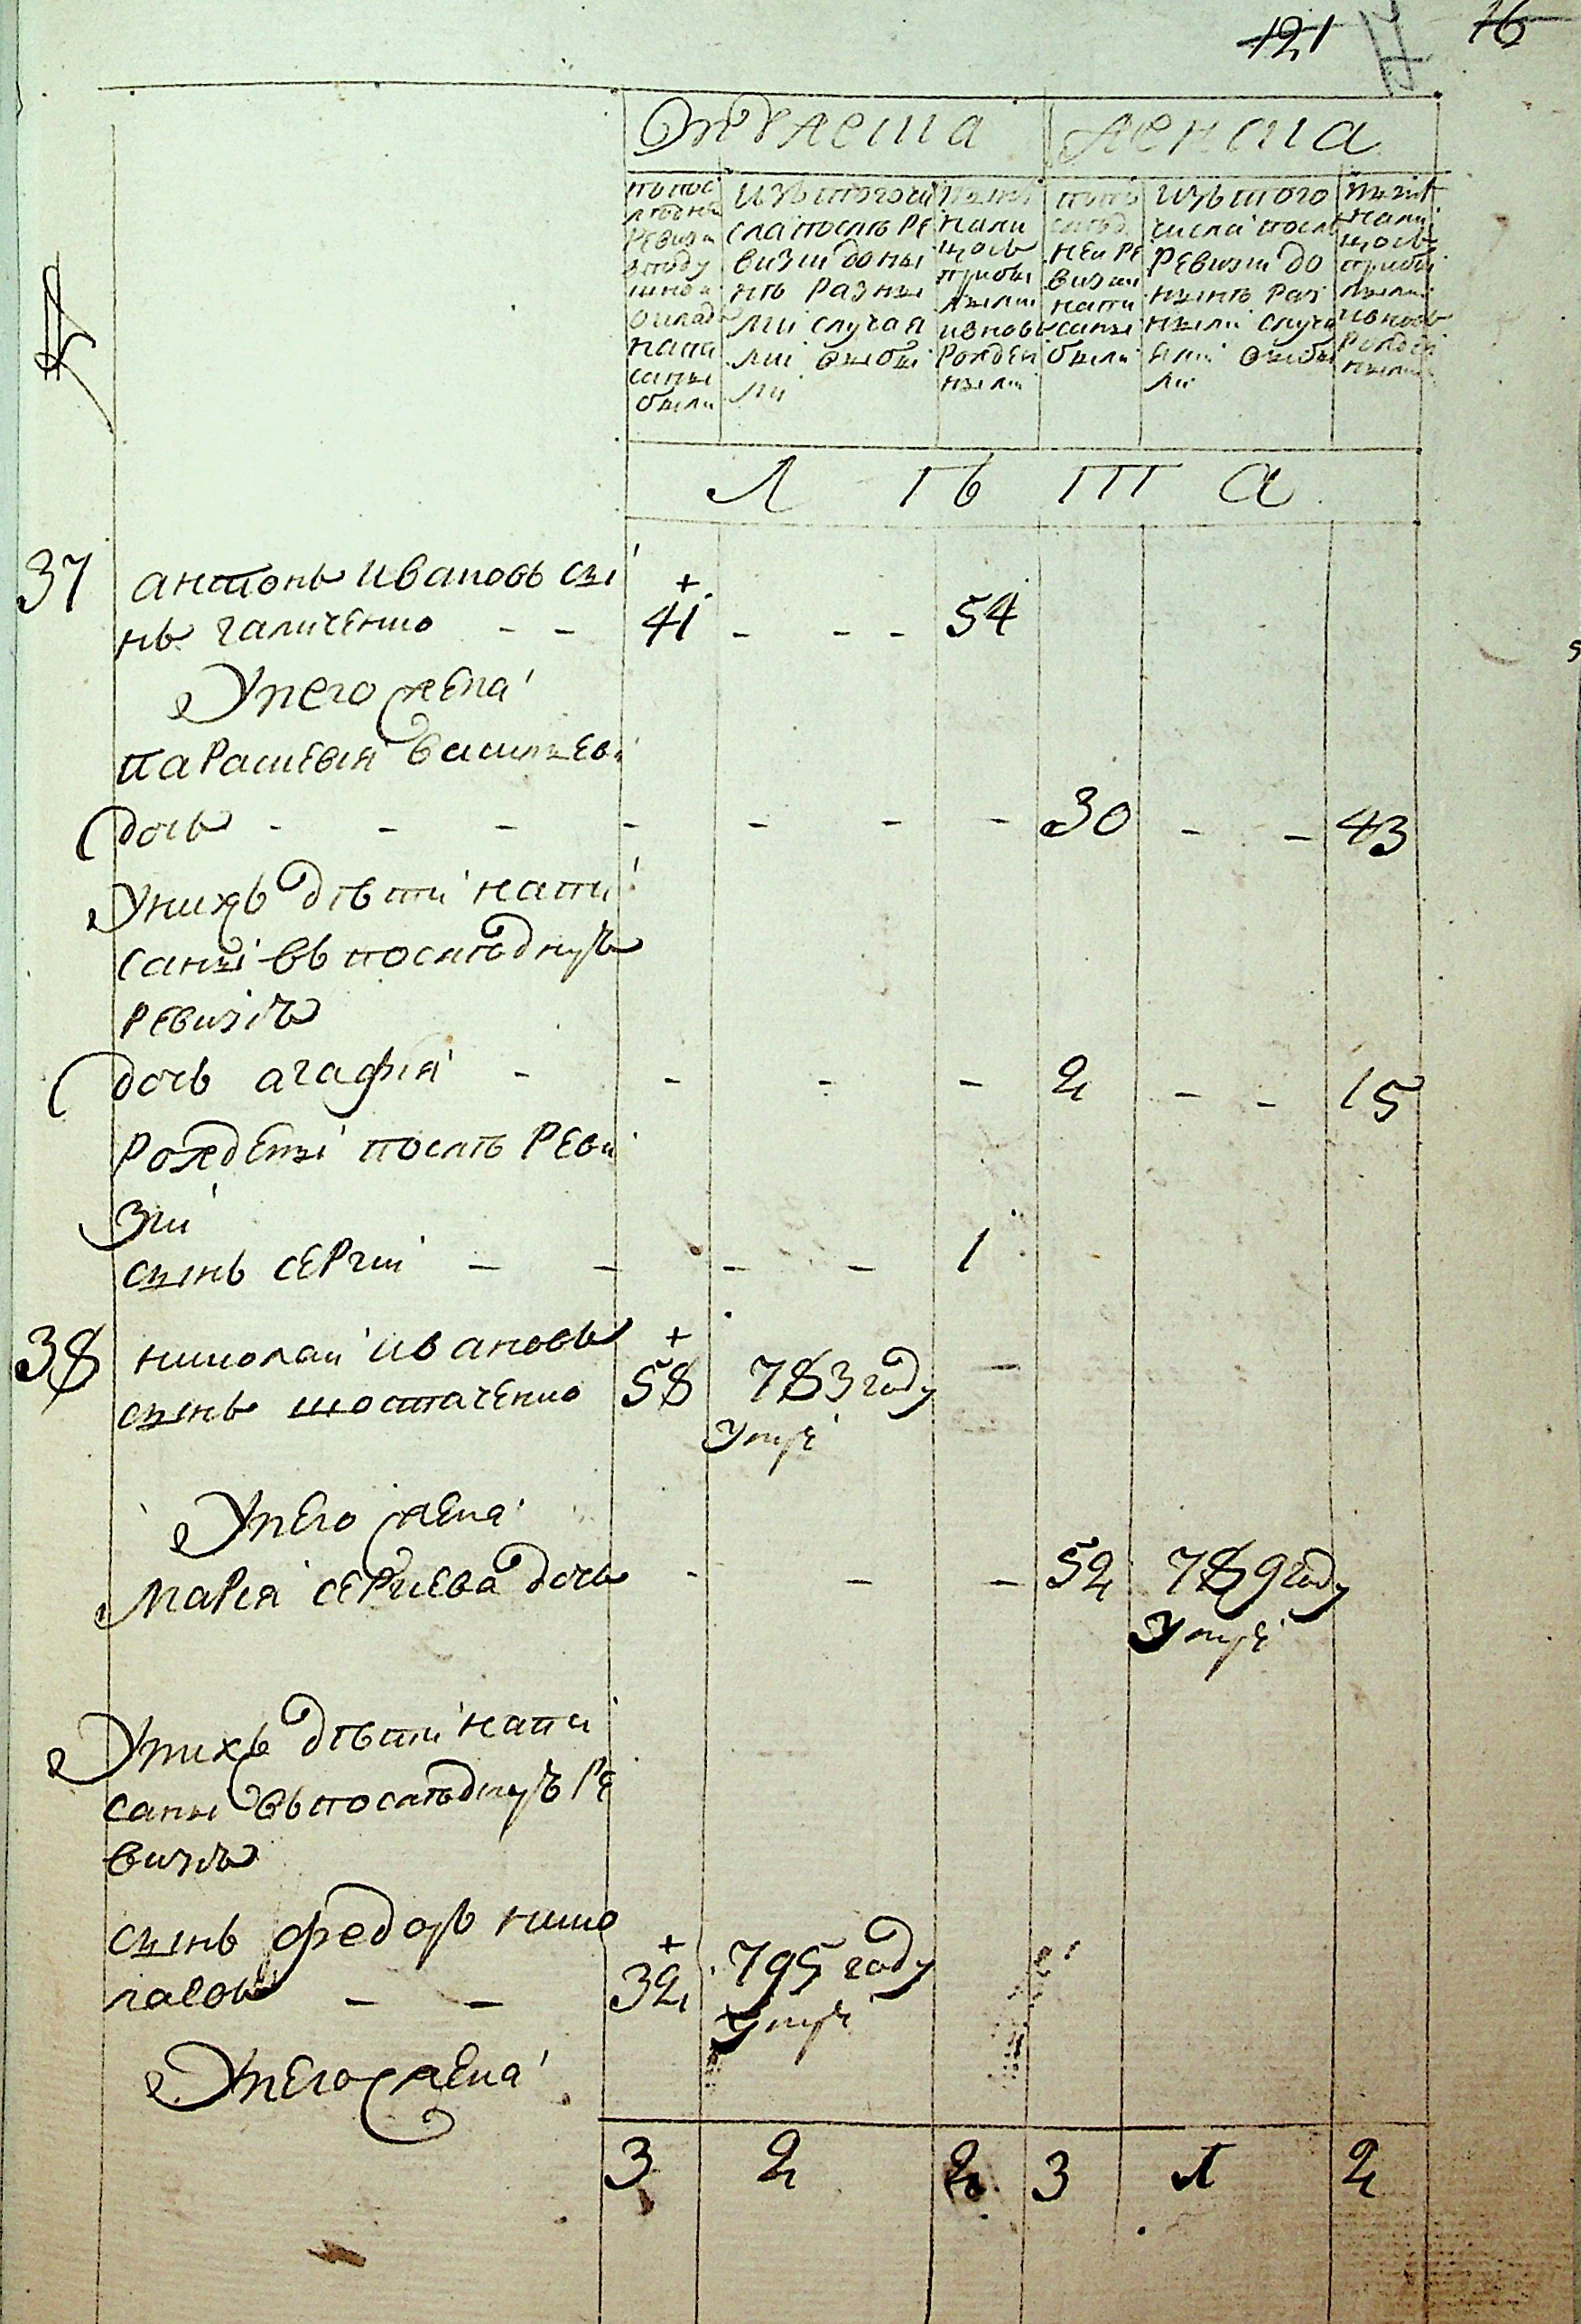 121 76
Мужеска Женска
по пос
ледней
ревизи
в поду
шной
оклад
напи
саны
были
изъ того чи
сла после ре
визии до ны
не разны
ми случая
ми выбы
ли
ныне
нали
цось
прибы
лыми
и вновь
рожден
ными
по по
след
ней ре
визии
напи
саны
были
изъ того
числа после
ревизии до
ныне раз
ными случа
ями выбы
ли
ныне
нали
цось
прибы
лыми
и вновь
рожден
ными
Л ѣ т а
37 антонъ ивановъ сы +
нъ галиченко - - 41 - - - 54
У него жена
параскевия василева
дочь - - - - - - - 30 - - 43
У нихъ дѣти напи
саны въ последнуъ
ревизiъ
дочь агафия - - - - 2 - - 15
рожденны после реви
зии
сынъ сергии - - - - 1
38 николаи ивановъ +
сынъ шостаченко 58 783 году -
умре
У него жена
мария сергиева дочь - - - 52 789 году
умре
У нихъ дѣти напи
саны въ последнуъ ре
визiъ
сынъ федоръ нико +
лаевъ - - 32 795 году
умре
У него жена
3 2 2 3 1 2